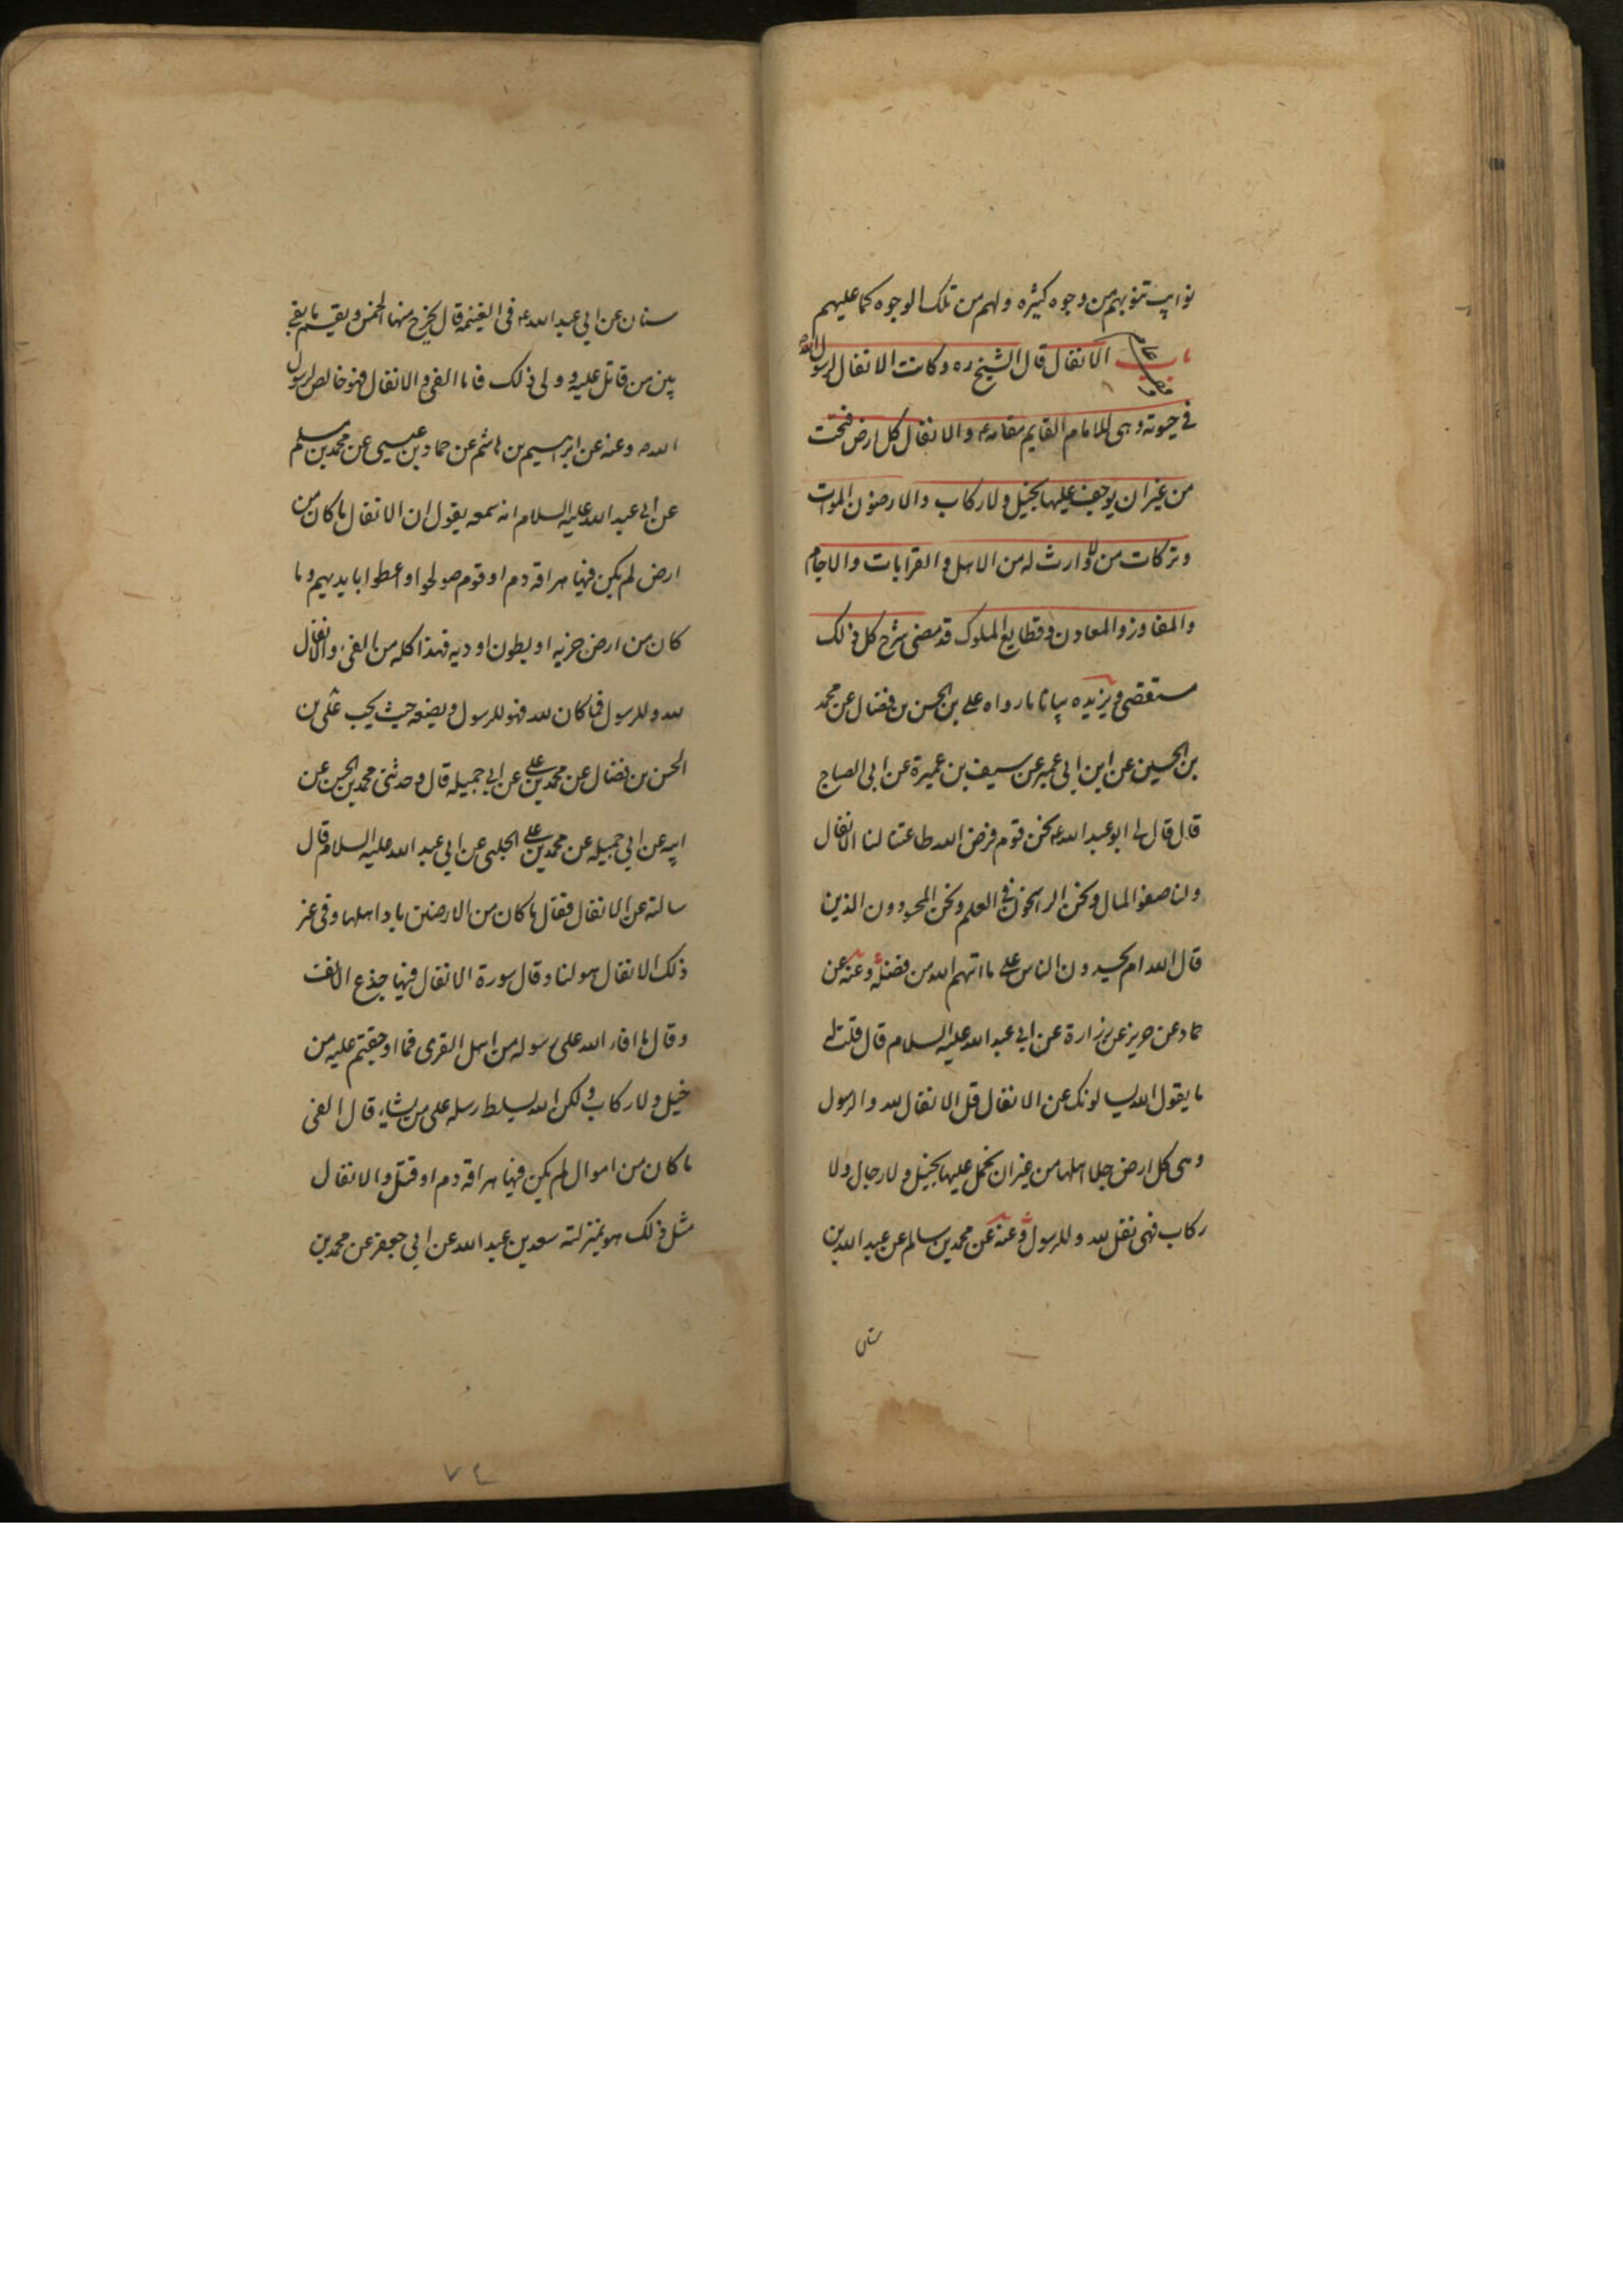 نوايب تنوبهم من وجوه كثيره ولهم من تلك الوجوه كما عليهم
باب الانفال قال الشيخ ره وكانت الانفال لرسول الله
في حيوته وهى للامام القايم مقامه والانفال كل ارض فتحت
من غير ان يوجف عليها بخيل ولا ركاب والارضون الموات
وتركات من لا وارث له من الاهل والقرابات والاجام
والمفاوز والمعادن وقطايع الملوك قد مضى شرح كل ذلك
مستقصى ويزيده بيانا ما رواه على بن الحسن بن فضال عن محمد
بن الحسين عن ابن ابى عمير عن سيف بن عميرة عن ابى الصباح
قال قال لى ابو عبد الله ع نحن قوم فرض الله طاعتنا لنا الانفال
ولنا صفو المال ونحن الراسخون في العلم ونحن المحسودون الذين
قال الله ام يحسدون الناس على ما اتهم الله من فضله وعنه عن
حماد عن حريز عن زرارة عن ابى عبد الله عليه السلام قال قلت له
ما يقول الله يسالونك عن الانفال قل الانفال لله والرسول
وهى كل ارض جلا اهلها من غير ان يحمل عليها بخيل ولا رجال ولا
ركاب فهى نفل لله وللرسول وعنه عن محمد بن سالم عن عبد الله بن
سنان
سنان عن ابى عبد الله ع فى الغنيمة قال يخرج منها الخمس ويقسم ما بقى
بين من قاتل عليه وولى ذلك فاما الفى والانفال فهو خالص لرسول
الله ص وعنه عن ابراهيم بن هاشم عن حماد بن عيسى عن محمد بن مسلم
عن ابى عبد الله عليه السلام انه سمعه يقول ان الانفال ما كان من
ارض لم يكن فيها هراقه دم او قوم صولحوا او اعطوا بايديهم وما
كان من ارض خربه او بطون اوديه فهذا كله من الفى والانفال
لله وللرسول فما كان لله فهو للرسول ويضعه حيث يحب على بن
الحسن بن فضال عن محمد بن على عن ابى جميله قال وحدثنى محمد بن الحسن عن
ابيه عن ابى جميله عن محمد بن على الحلبى عن ابى عبد الله عليه السلام قال
سالته عن الانفال فقال ما كان من الارضين باد اهلها وفى غير
ذلك الانفال هو لنا وقال سورة الانفال فيها جذع الانف
وقال ما افاء الله على رسوله من اهل القرى فما اوجفتم عليه من
خيل ولا ركاب ولكن الله يسلط رسله على من يشاء قال الفى
ما كان من اموال لم يكن فيها هراقه دم او قتل والانفال
مثل ذلك هو بمنزلته سعد بن عبد الله عن ابى جعفر عن محمد بن